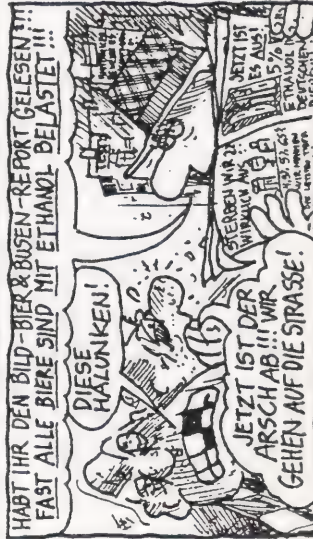 HABT IHR DEN BILD-BIER & BUSEN-REPORT GELESEN!!!
FAST ALLE BIERE SIND MIT ETHANOL BELASTET!!!
DIESE
HALUNKEN!
JETZT IST DER
ARSCH AB!!! WIR
GEHEN AUF DIE STRASSE!
STERBEN WIR
WIRKLICH AUS?
JETZT IST
ES AUS!
5%
ETHANOL
DEUTSCHEN